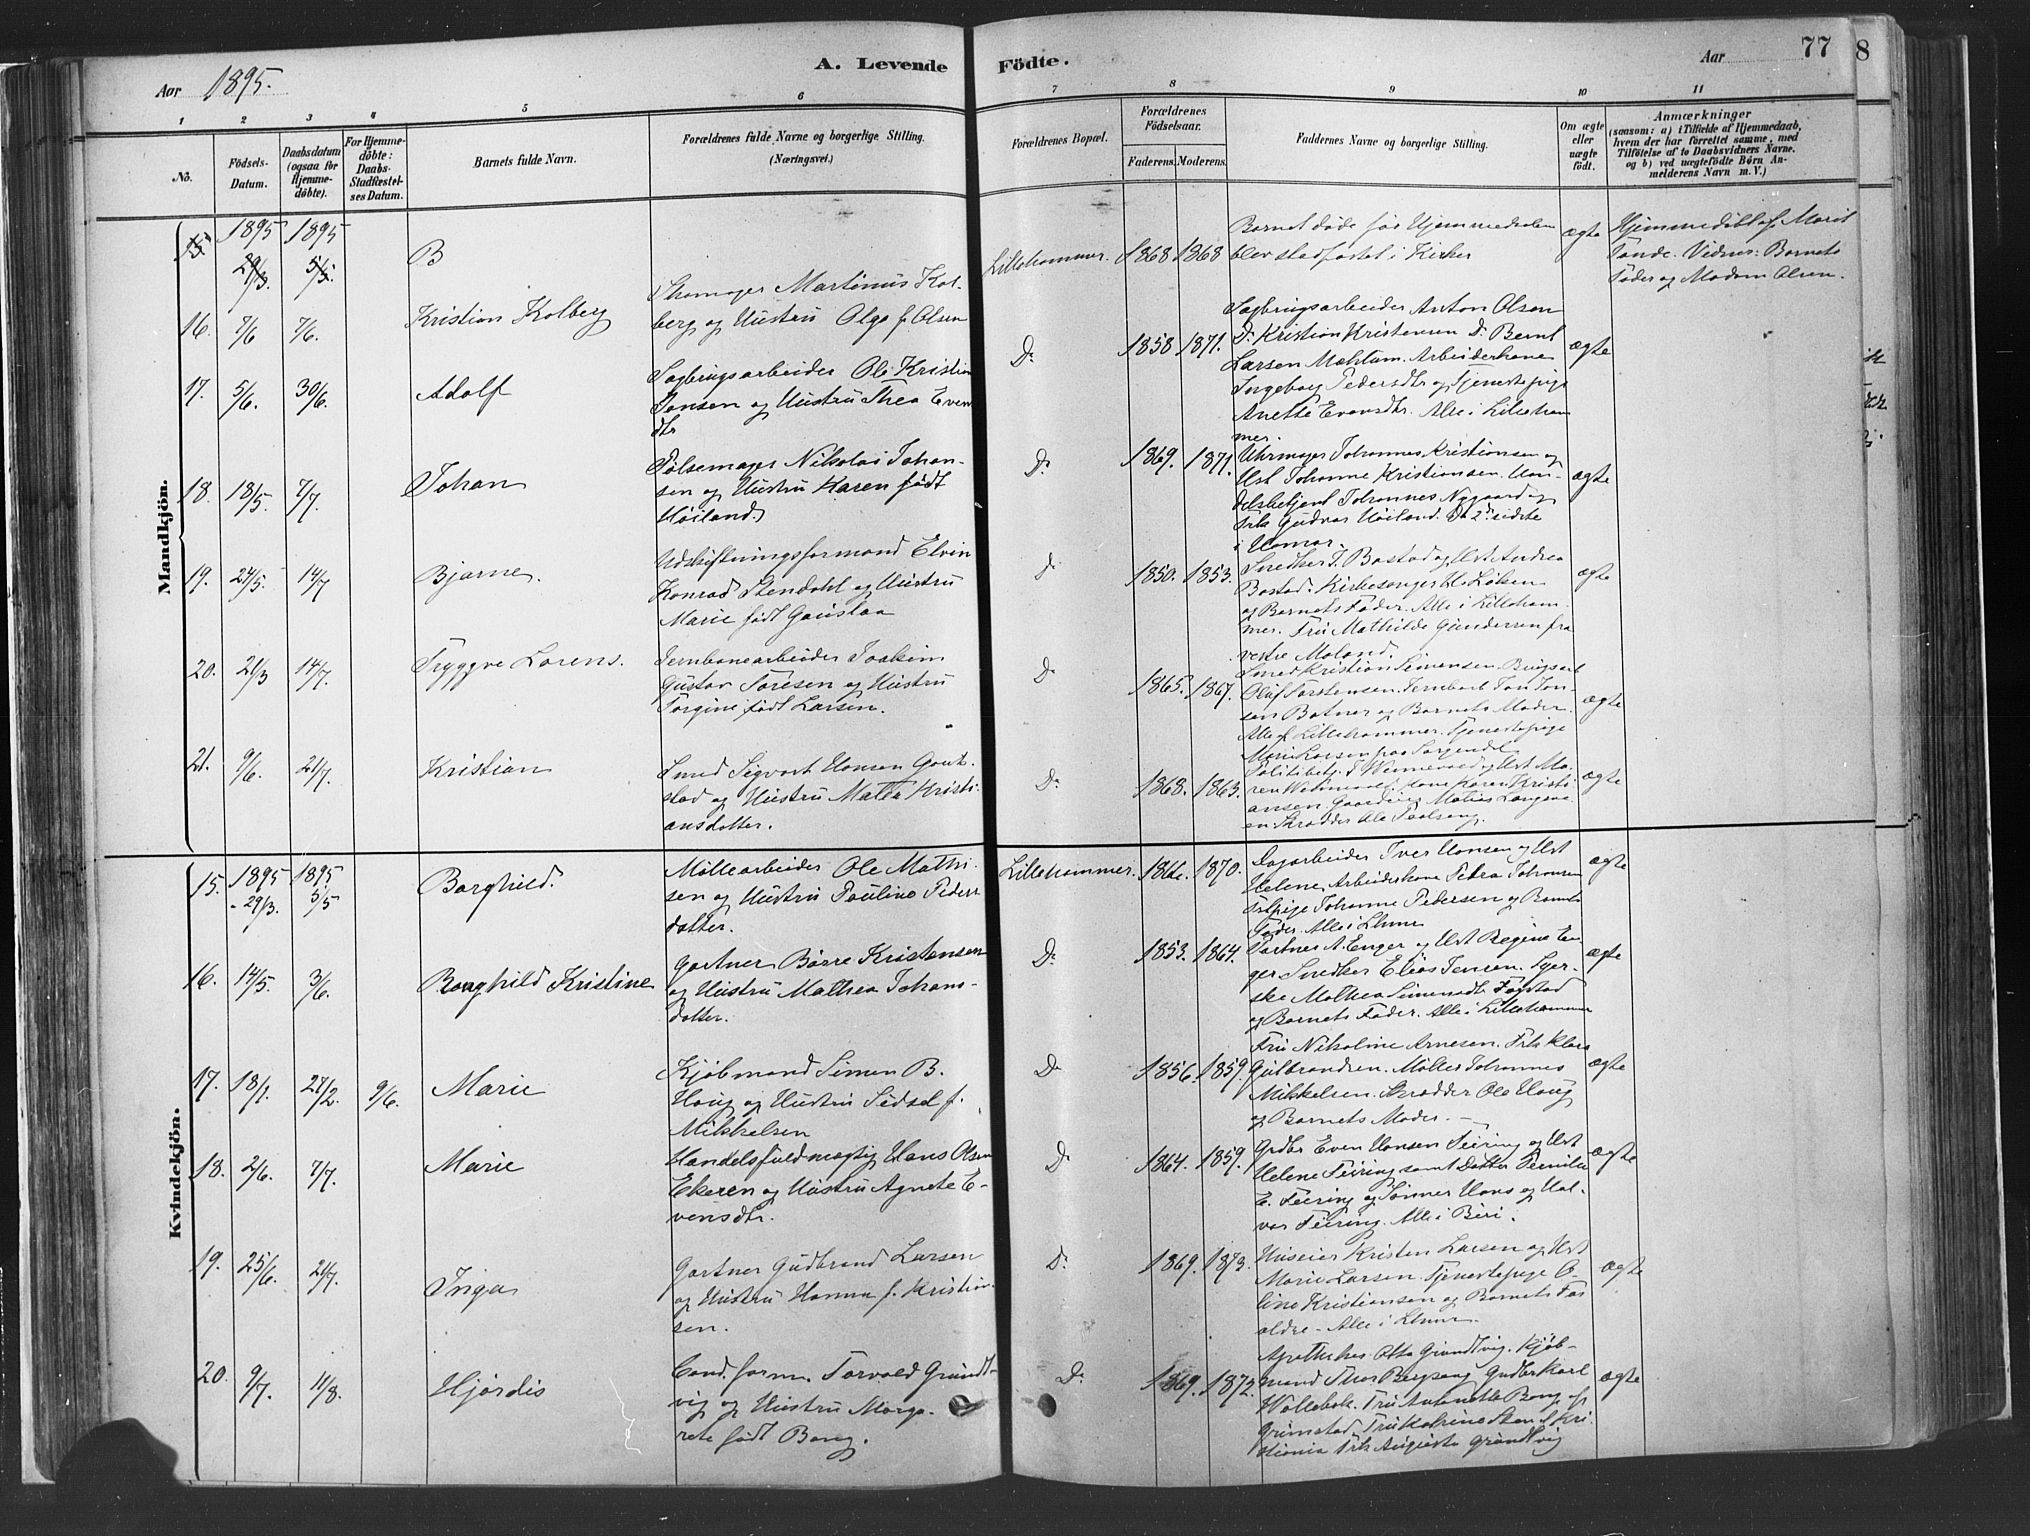 A. Levende Födte.
Aar 1895.
Aar 77
8
1 2 3 4 5 6 7 8 9 10 11
No.
Födsels-Datum.
Daabsdatum (ogsaa for Hjemme-døbte).
For Hjemme-døbte: Daabs-Stadfæstel-ses Datum.
Barnets fulde Navn.
Forældrenes fulde Navne og borgerlige Stilling. (Næringsvei.)
Forældrenes Bopæl.
Forældrenes Födselsaar.
Faderens. Moderens.
Faddernes Navne og borgerlige Stilling.
Om ægte eller uægte födt.
Anmærkninger (saasom: a) i Tilfælde af Hjemmedaab, hvem der har forrettet samme, med Tilföielse af to Daabsvidners Navne, og b) ved uægtefödte Børn An-melderens Navn m. V.)
Mandkjön.
15 1895 29/3 1895 5/5 B
16. 7/6 7/6. Kristian Kolberg
Skomager Martinus Kol-
berg og Hustru Olga f. Olsen
Lillehammer. 1868 1868
Barnet døde før Hjemmedaaben
blev stadfæstet i Kirken
ægte
Hjemmedøbt af Marit
Tande. Vidner: Barnets
Fader og Madam Olsen.
17. 5/6. 30/6. Adolf
Sagbrugsarbeider Ole Kristian
Jansen og Hustru Thea Even
dtr
Do 1858 1871.
Sagbrugsarbeider Anton Olsen
Do Kristian Kristensen Do Bernt
Larsen Arbeiderkone
Ingeborg Pedersdtr og Tjenestepige
Anette Evensdtr. Alle i Lilleham
mer.
ægte
18. 18/5. 7/7. Johan
Pølsemager Nikolai Johan-
sen og Hustru Karen født
Høiland.
Do 1869. 1871.
Uhrmager Johannes Kristiansen og
Ust Johanne Kristiansen. Han-
delsbetjent Johannes Nygaard og
Frk Gudrun Høiland. De 2de sidste
i Hamar.
ægte
19. 24/5. 14/7 Bjarne.
Udskiftningsformand Elvin
Konrad Stendahl og Hustru
Marie født Gauslaa
Do 1850. 1853.
Snedker J. Bostad og Ust Andrea
Bostad. Kirkesanger Løken
og Barnets Fader. Alle i Lilleham
mer. Fru Mathilde Gundersen fra
vestre Moland.
ægte
20. 21/3 14/7. Tryggve Lorens.
Jernbanearbeider Joakim
Gustav Toresen og Hustru
Torgine født Larsen.
Do 1865. 1867.
Smed Kristian Simensen. Brugsarb
Oluf Torstensen. Jernbarb Jon Jon-
sen Botner og Barnets Moder.
Alle f Lillehammer. Tjenestepige
Marie Larsen
ægte
21. 9/6. 21/7. Kristian
Smed Sigvart Hansen
stad og Hustru Matea Kristi-
ansdatter.
Do 1868. 1863.
ansen
ægte
Kvindekjön.
15. 1895 - 29/3. 1895 5/5 Borghild.
Møllearbeider Ole Mathi-
sen og Hustru Pauline Peders
datter.
Lillehammer. 1866. 1870.
Dagarbeider Iver Hansen og Ust
Helene, Arbeiderkone Petra Johansen
Johanne Pedersen og Barnets
Fader. Alle i Lhmr
ægte
16. 14/5. 3/6. Borghild Kristine
Gartner Børre Kristensen
og Hustru Mathea Johans-
datter.
Do 1853. 1864.
Gartner A. Enger og Ust Regine En
ger Snedker Elias Jensen. Syer-
ske Mathea Simensdtr Fogstad
og Barnets Fader. Alle i Lillehammer
ægte
17. 18/1. 27/2. 9/6. Marie
Kjøbmand Simen B.
Haug og Hustru Sidsel f.
Mikkelsen
Do 1856. 1859.
Fru Nikoline Arnesen. Frk Klara
Gulbrandsen. Møller Johannes
Mikkelsen. Skrædder Ole Haug
og Barnets Moder. -
ægte
18. 2/6. 7/7. Marie
Handelsfuldmægtig Hans Olsen
Ekeren og Hustru Agnete E-
vensdtr.
Do 1864. 1859.
Grdbr Even Hansen Feiring og Ust
Helene Feiring samt Datter
E. Feiring og Sønner Hans og Hal-
vor Feiring. Alle i Biri.
ægte
19. 25/6. 21/7. Inga
Gartner Gudbrand Larsen
og Hustru Hanna f. Kristian-
sen.
Do 1869. 1873.
Huseier Kristen Larsen og Ust
Marie Larsen. Tjenestepige O-
line Kristiansen og Barnets For
ældre - Alle i Lhmr
ægte
20. 9/7. 11/8. Hjørdis
Cand. farm. Torvald Grundt-
vig og Hustru Marga-
rete født Borg.
Do 1869. 1872.
Apotheker Otto Grundtvig. Kjøb-
mand Thor Bergseng Grdbr Karl
Wollebæk. Fru Antonette Borg af
Grimstad, Fru Katrine Steen f Kri-
stiania Frk Augusta Grundtvig
ægte